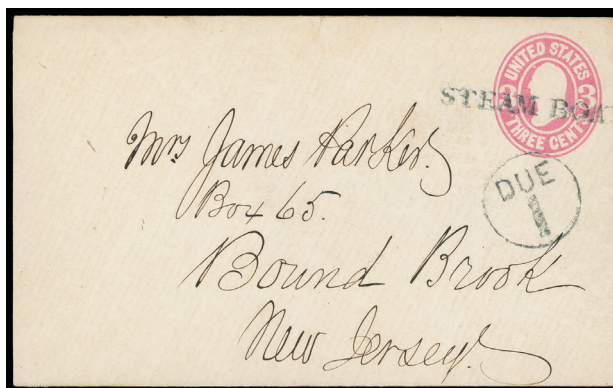 UNITED STATES
3 3
THREE CENTS
STEAM BOAT
DUE
1
Mrs James Parker.
Box 65.
Bound Brook
New Jersey.